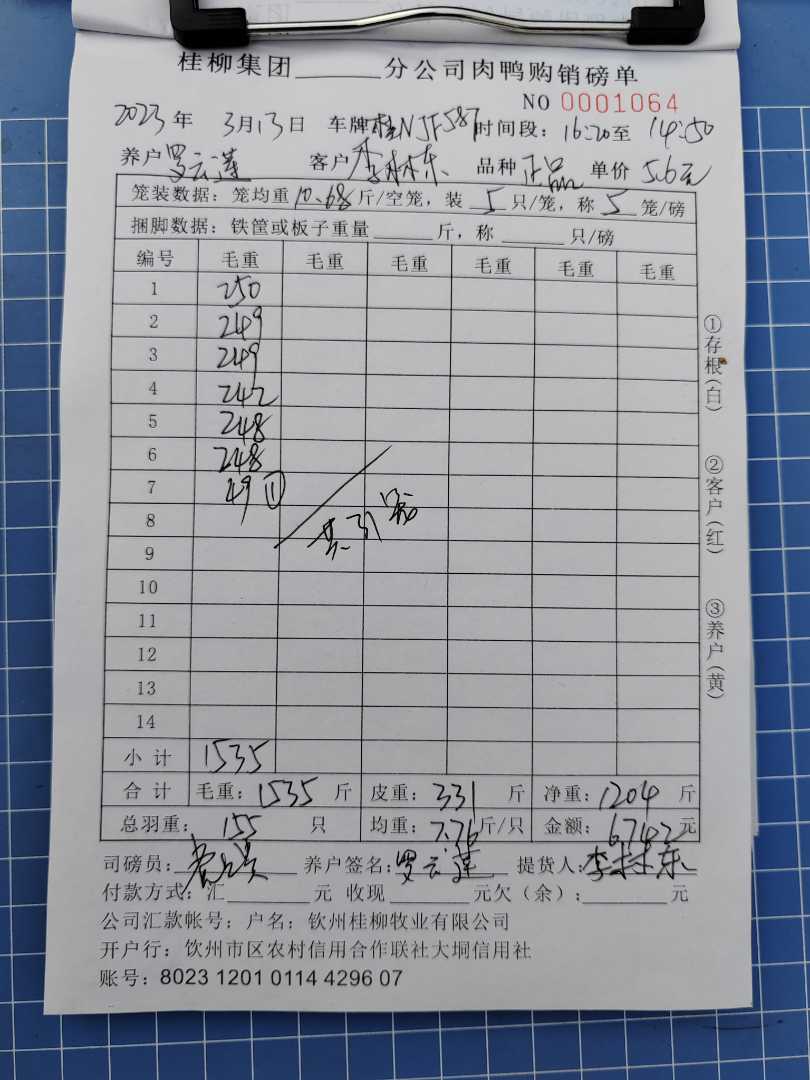 桂柳集团______分公司肉鸭购销磅单
NO 0001064
2023年 3月13日 车牌桂NJF587 时间段：16:20至 14:50
养户 罗云莲 客户 李林东 品种 正品 单价 5.6元
笼装数据：笼均重 10.68 斤/空笼，装 5 只/笼，称 5 笼/磅
捆脚数据：铁筐或板子重量______斤，称______只/磅
编号 毛重 毛重 毛重 毛重 毛重 毛重
1 250
2 249
3 249
4 242
5 248
6 248
7 49 ①
8 共31笼
9
10
11
12
13
14
小计 1535
合计 毛重：1535 斤 皮重：331 斤 净重：1204 斤
总羽重：155 只 均重：7.76 斤/只 金额：6742 元
司磅员： 养户签名：罗云莲 提货人：李林东
付款方式：汇______元 收现______元欠（余）：______元
公司汇款帐号：户名：钦州桂柳牧业有限公司
开户行：钦州市区农村信用合作联社大垌信用社
账号：8023 1201 0114 4296 07
①存根（白）
②客户（红）
③养户（黄）